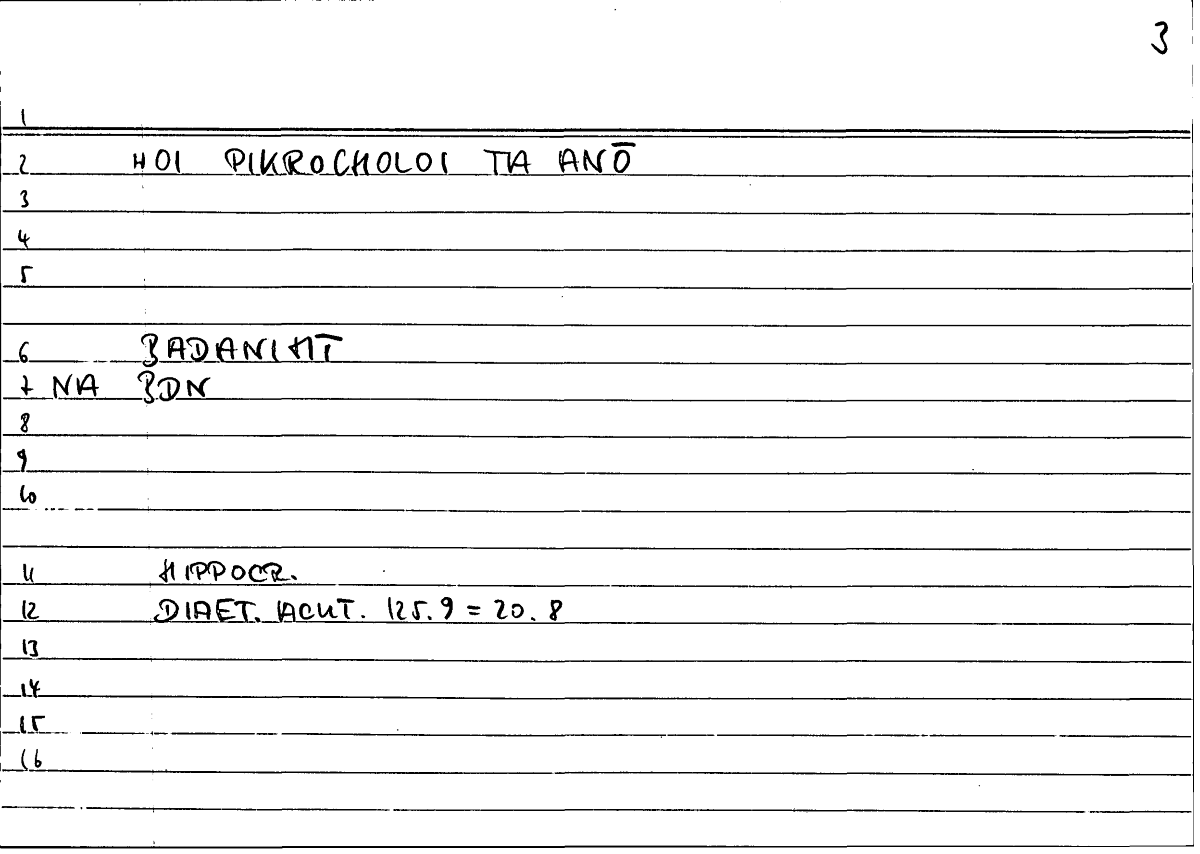 3
1
2 HOI PIKROCHOLOI TA ANŌ
3
4
5
6 BADANIHĪ
7 NA BDN
8
9
10
11 HIPPOCR.
12 DIAET. ACUT. 125.9 = 20.8
13
14
15
16